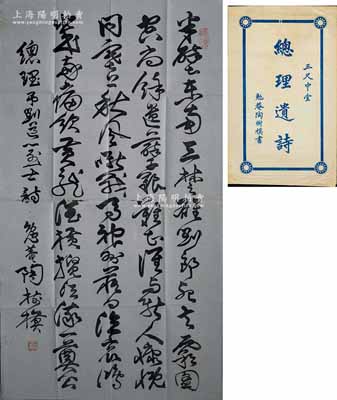 上海陽明拍賣
半壁東南三楚雄劉郎死去霸圖
空尚餘遺業艱難甚誰與斯人慷慨
同塞上秋風戰馬神州落日泣哀鴻
幾時痛飲黃龍酒橫攬江流一奠公
總理弔劉道一烈士詩 勉菴陶樹模
三尺中堂
總理遺詩
勉菴陶樹模書